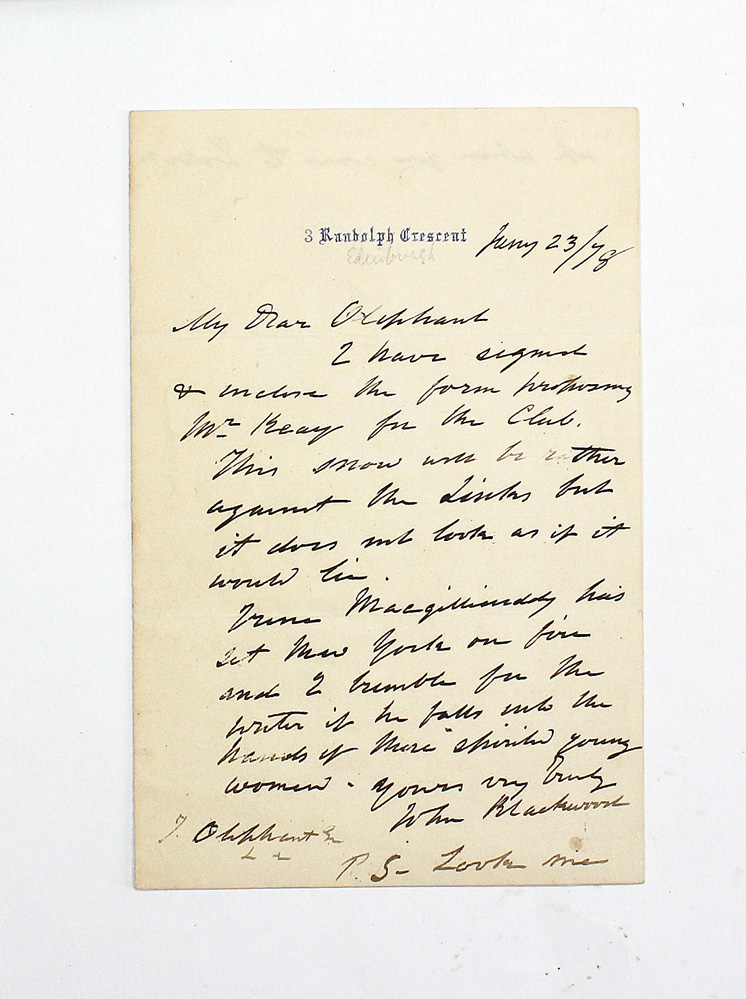 3 Randolph Crescent Jany 23/78
Edinburgh
My Dear Oliphant
I have signed
& enclose the form proposing
Mr Keay for the Club.
This snow will be rather
against the Links but
it does not look as if it
would lie.
Irene Macgillicuddy has
set New York on fire
and I tremble for the
writer if he falls into the
hands of those spirited young
women - yours very truly
John Blackwood
T. Oliphant
P.S. Look me